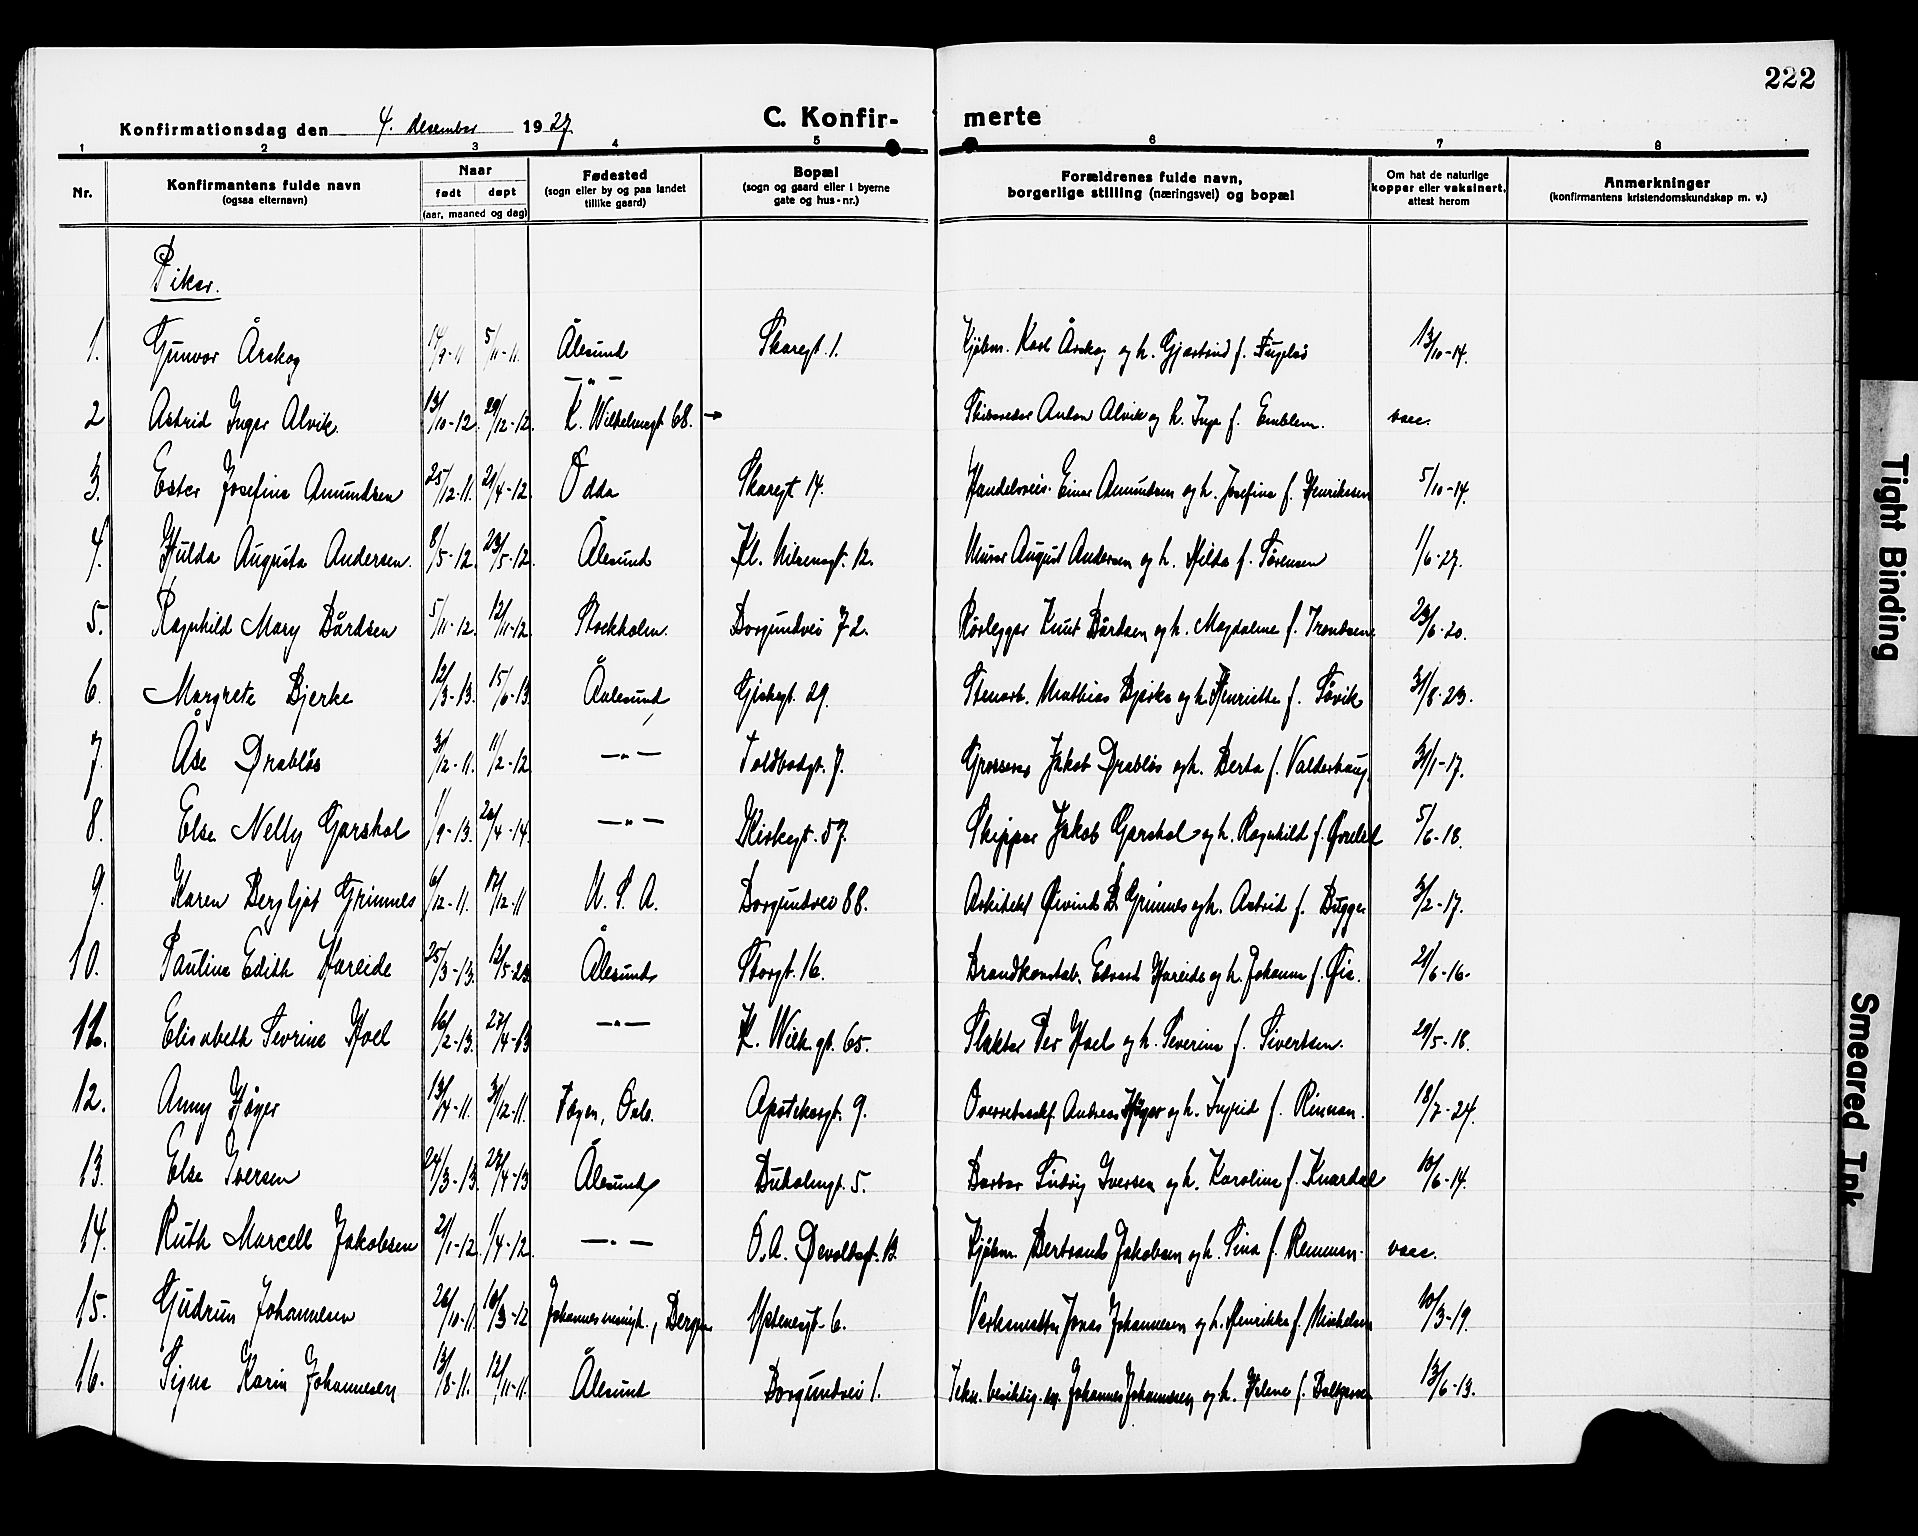 222
Konfirmationsdag den 4. desember 1927
C. Konfir- merte
1 2 3 4 5 6 7 8
Nr.
Konfirmantens fulde navn
(ogsaa elternavn)
Naar
født døpt
(aar, maaned og dag)
Fødested
(sogn eller by og paa landet
tillike gaard)
Bopæl
(sogn og gaard eller i byerne
gate og hus-nr.)
Forældrenes fulde navn,
borgerlige stilling (næringsvei) og bopæl
Om hat de naturlige
kopper eller vaksinert,
attest herom
Anmerkninger
(konfirmantens kristendomskundskap m. v.)
Piker.
1. Gunvor Årskog 14/9-11 5/11-11. Ålesund Skaregt. 1. Kjøbm. Karl Årskog og h. Gjertrud f. 13/10-14.
2 Astrid Inger Alvik. 13/10-12 29/12-12. —"— K. Wilhelmsgt 68. → Anton Alvik og h. Inga f. Emblem. vacc.
3. Ester Josefine Amundsen 25/12-11. 21/4-12. Odda Skaregt 14. Handelsreis. Einar Amundsen og h. Josefine f. Henriksen 5/10-14.
4. Hulda Augusta Andersen. 8/5-12. 23/5-12. Ålesund Kl. Nilsensgt. 12. Murer August Andersen og h. Hilda f. Sørensen 1/6-27.
5. Ragnhild Mary Bårdsen 5/11-12. 12/11-12. Stockholm. Borgundvei 72. Rørlegger Knut Bårdsen og h. Magdalene f. 23/6-20.
6. Margrete Bjerke 12/3-13. 15/6-13. Aalesund Giskegt. 29. Stenarb. Mathias Bjerke og h. Henriette f. Søvik 31/8-23.
7. Åse Drabløs 31/12-11. 11/2-12 —"— Toldbodgt. 7. Grosserer Jakob Drabløs og h. Berta f. Valderhaug. 31/1-17.
8. Else Nelly Garshol 1/9-13. 26/4-14. —"— Kirkegt. 57. Skipper Jakob Garshol og h. Ragnhild f. 5/6-18.
9. Karen Bergljot Grimnes 6/12-11. 17/12-11 U. S. A. Borgundvei 88. Arkitekt Øivind B. Grimnes og h. Astrid f. Bugge 3/2-17.
10. Pauline Edith Hareide 25/3-13. 12/5-23. Ålesund Storgt. 16. Brandkonstab. Edvart Hareide og h. Johanne f. Øie. 21/6-16-
11. Elisabeth Sevrine Hoel 16/2-13. 27/4-13 —"— K. Wilh. gt. 65. Slakter Per Hoel og h. Severine f. Sivertsen. 29/5-18.
12. Anny Høyer 13/4-11. 31/12-11. Tøyen, Oslo. Apotekergt. 9. Overretssakf. Andreas Høyer og h. Ingrid f. Rinnan. 18/7-24.
13. Else Iversen 24/3-13. 27/4-13 Ålesund Buholmgt. 5. Barber Ludvig Iversen og h. Karoline f. Knardal 10/6-14.
14. Ruth Marcell Jakobsen 21/1-12. 1/4-12. —"— O. A. Devoldsgt. 13. Kjøbm. Bertrand Jakobsen og h. Sina f. Remman. vacc.
15. Gudrun Johannesen 26/10-11 10/3-12 Johannesmenigh., Bergen Ystenesgt. 6. Verksmester Jonas Johannesen og h. Henrikke f. Mikkelsen 10/3-19.
16. Signe Karin Johannesen 13/8-11. 12/11-11. Ålesund Borgundvei 1. Johannes Johannesen og h. Helene f. 13/6-13.
Tight Binding
Smeared Ink